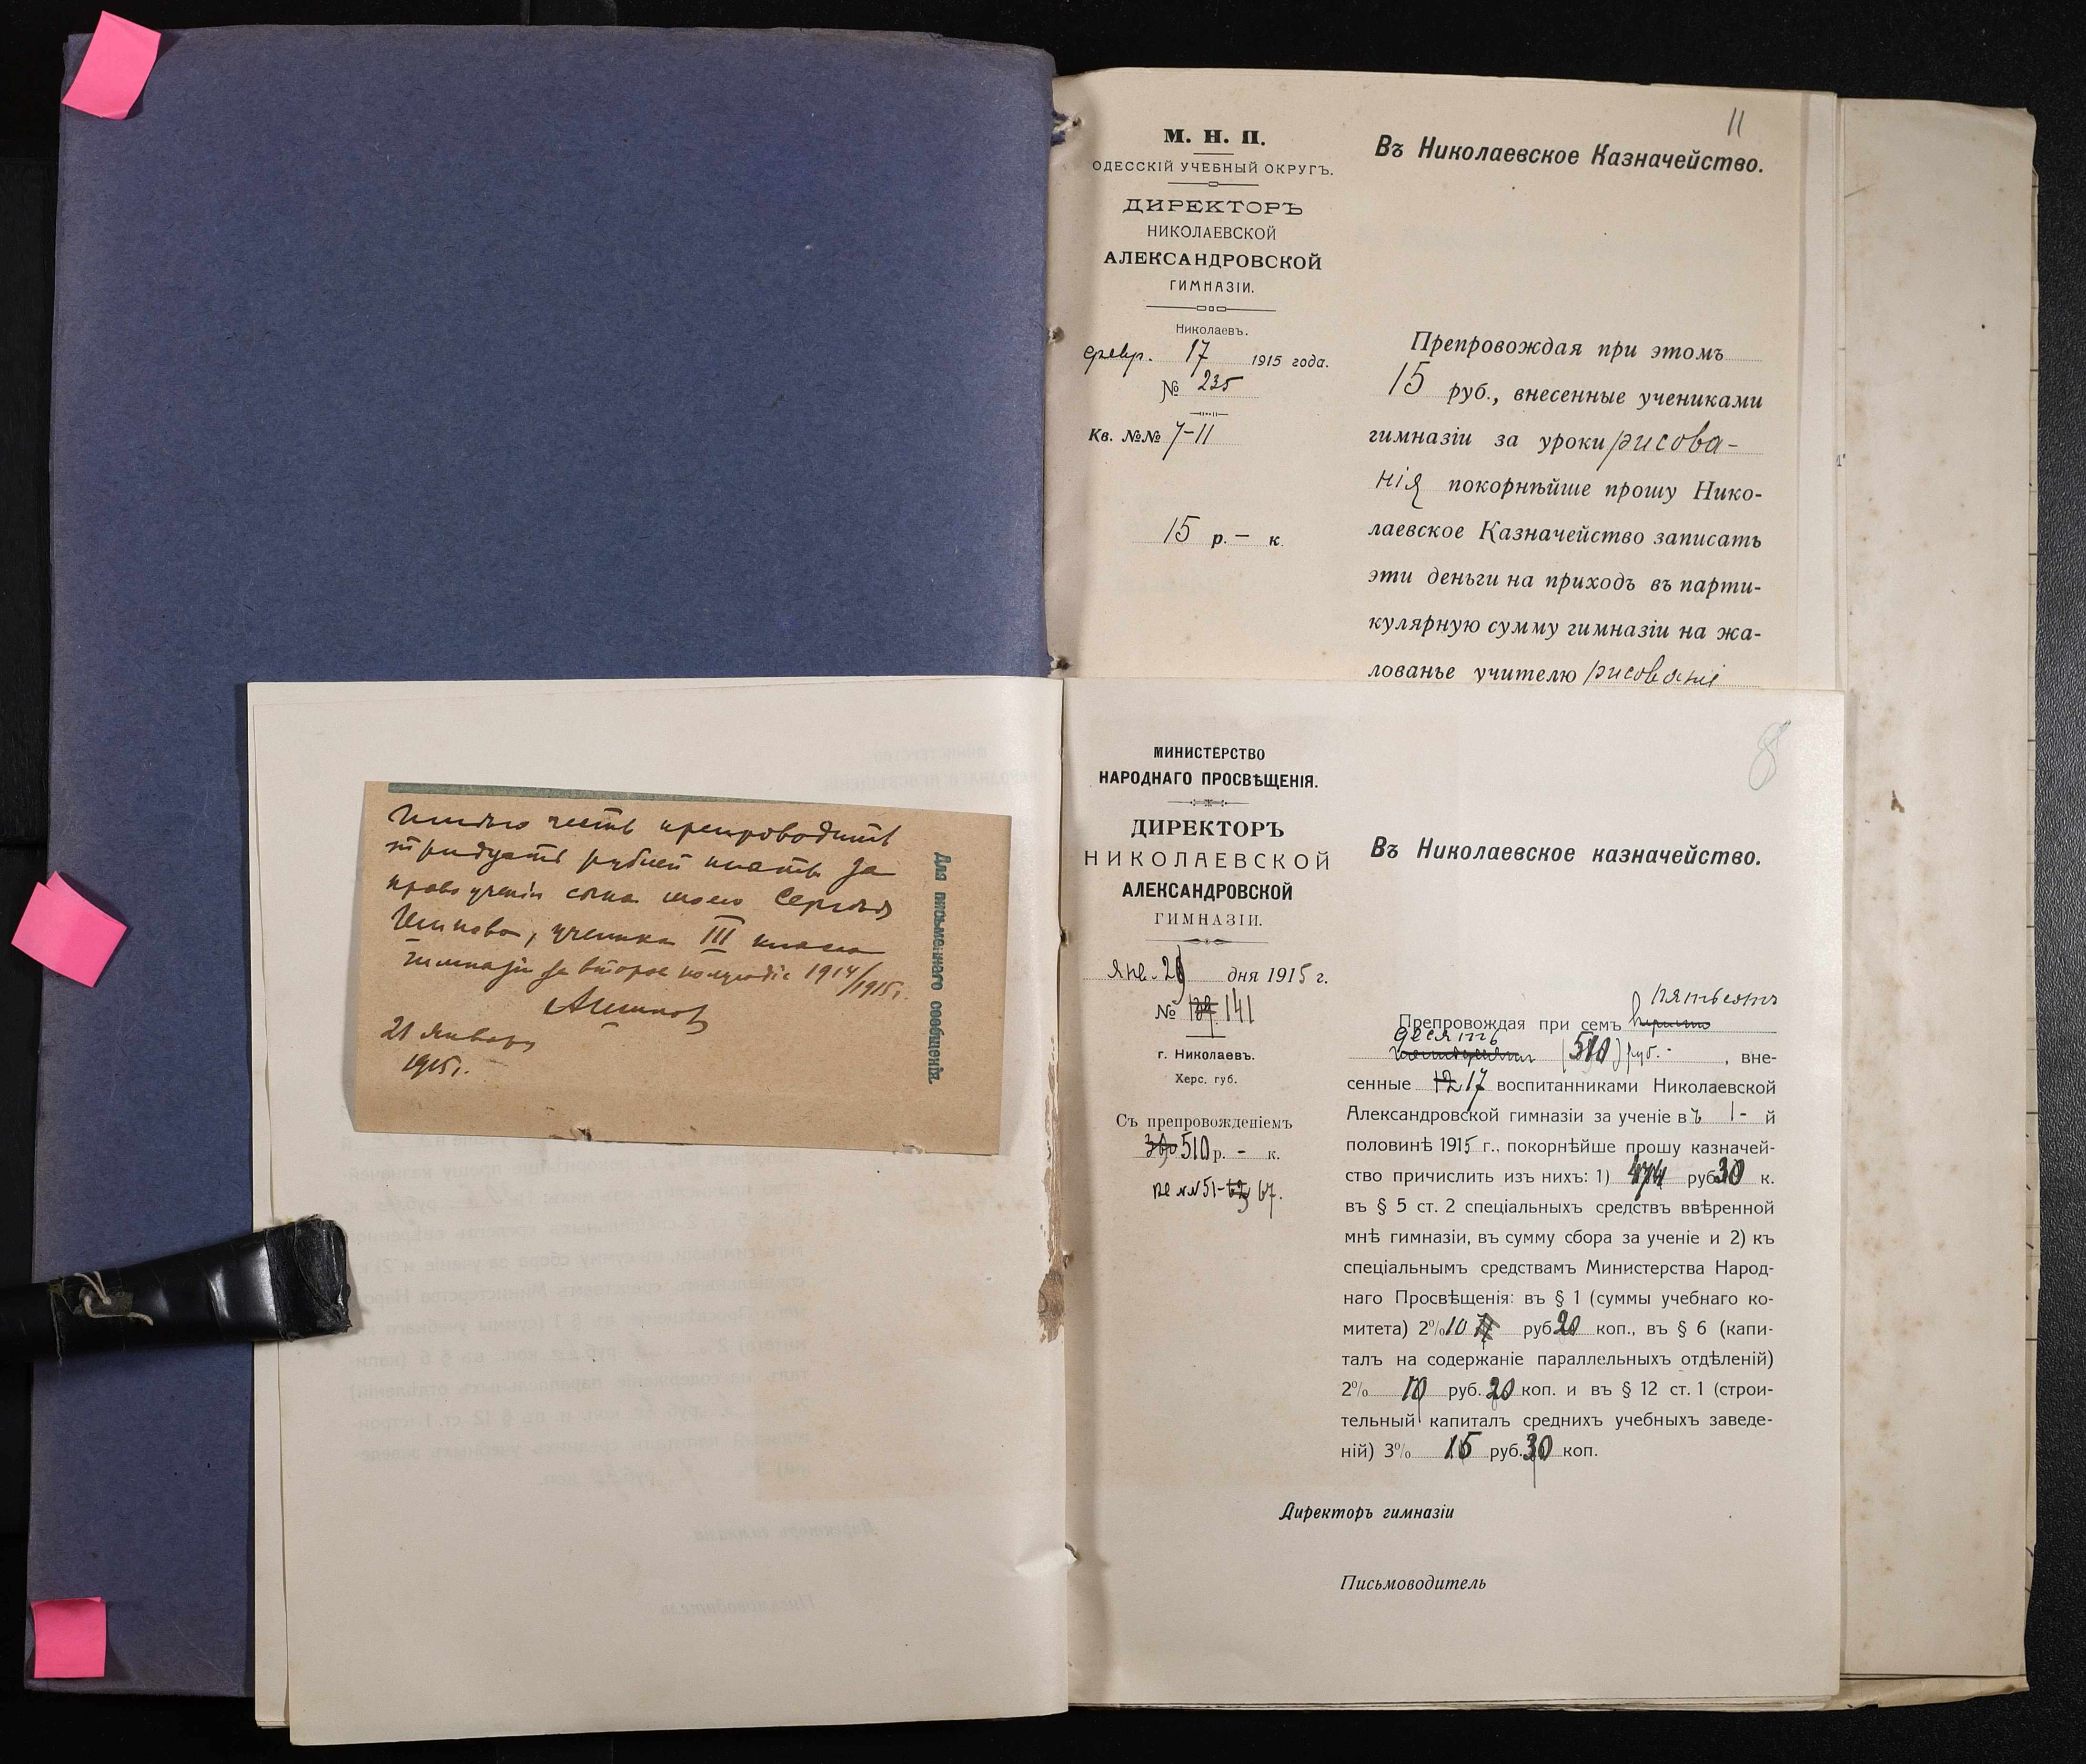 11
М. Н. П.
ОДЕССКІЙ УЧЕБНЫЙ ОКРУГЪ.
ДИРЕКТОРЪ
НИКОЛАЕВСКОЙ
АЛЕКСАНДРОВСКОЙ
ГИМНАЗІИ.
Николаевъ.
февр. 17 1915 года.
№ 235
Кв. №№ 7-11
15 р. — к.
Въ Николаевское Казначейство.
Препровождая при этомъ
15 руб., внесенные учениками
гимназіи за уроки рисова-
нія покорнѣйше прошу Нико-
лаевское Казначейство записать
эти деньги на приходъ въ парти-
кулярную сумму гимназіи на жа-
лованье учителю рисованія
Имѣю честь препроводить
тридцать рублей плату за
право ученія сына моего Сергѣя
ученика III класса
гимназіи за второе полугодіе 1914/1915 г.
21 Января
1915 г.
Для письменнаго сообщенія.
8
МИНИСТЕРСТВО
НАРОДНАГО ПРОСВѢЩЕНІЯ.
ДИРЕКТОРЪ
НИКОЛАЕВСКОЙ
АЛЕКСАНДРОВСКОЙ
ГИМНАЗІИ.
Янв. 29 дня 1915 г.
№ 141
г. Николаевъ.
Херс. губ.
Съ препровожденіемъ
510 р. - к.
№№ 51- 67.
Въ Николаевское казначейство.
пятьсотъ
Препровождая при семъ
десять
(510) руб. - , вне-
сенные 12 17 воспитанниками Николаевской
Александровской гимназіи за ученіе въ 1- й
половинѣ 1915 г., покорнѣйше прошу казначей-
ство причислить изъ нихъ: 1) 474 руб. 30 к.
въ § 5 ст. 2 спеціальныхъ средствъ ввѣренной
мнѣ гимназіи, въ сумму сбора за ученіе и 2) къ
спеціальнымъ средствамъ Министерства Народ-
наго Просвѣщенія: въ § 1 (суммы учебнаго ко-
митета) 2% 10 руб. 20 коп., въ § 6 (капи-
талъ на содержаніе параллельныхъ отдѣленій)
2% 10 руб. 20 коп. и въ § 12 ст. 1 (строи-
тельный капиталъ среднихъ учебныхъ заведе-
ній) 3% 15 руб. 30 коп.
Директоръ гимназіи
Письмоводитель